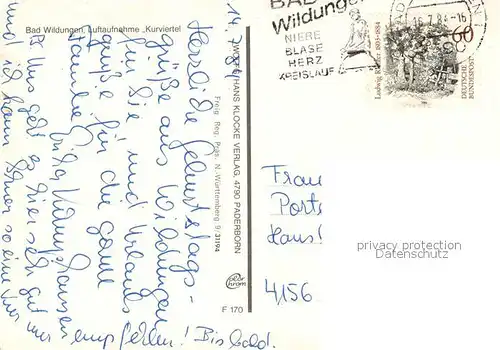 Bad Wildungen, Luftaufnahme „Kurviertel"
14.7.84
Herzliche Geburtstags-
grüße aus Wildungen
für Sie und Urlaubs
grüße für die ganze
Familie
Uns geht es hier sehr gut
und ich kann Ihnen so eine Kur
nur empfehlen! Bis bald.
HANS KLOCKE VERLAG, 4790 PADERBORN
Freig. Reg. Präs. N.-Württemberg 9/31194
color
chrom
F 170
BAD
Wildungen
NIERE
BLASE
HERZ
KREISLAUF
16.7.84-15
Ludwig Richter 1803-1884
60
DEUTSCHE
BUNDESPOST
Frau
Haus
4156
privacy protection